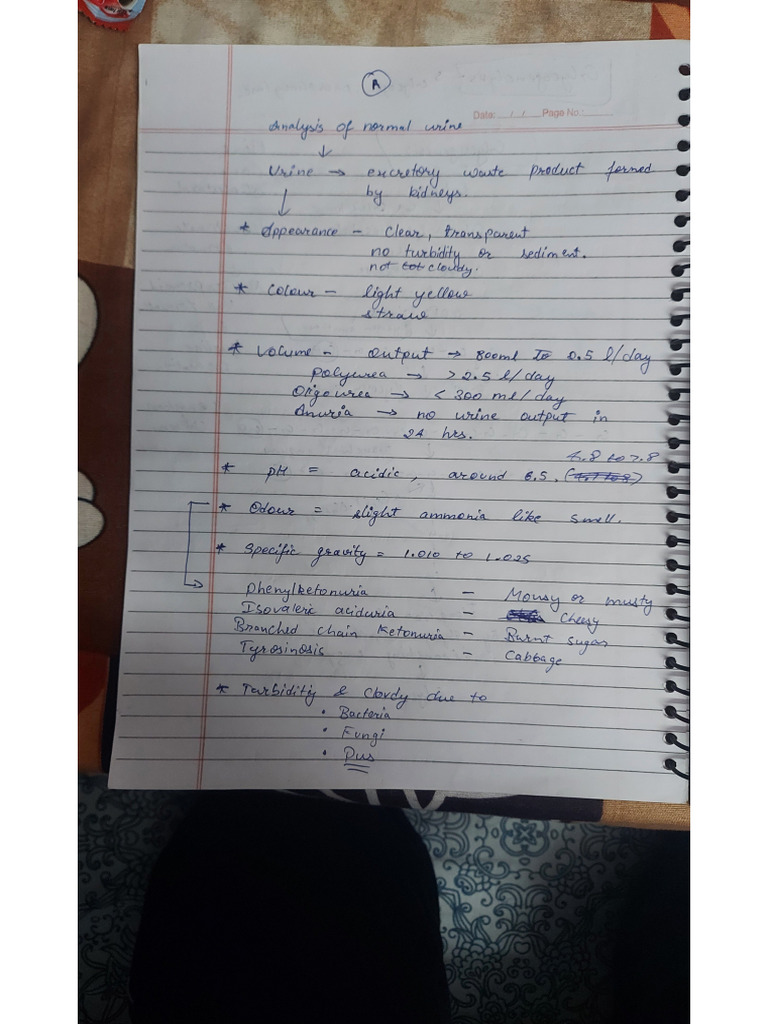 A
Data: / / Page No:
Analysis of normal urine
↓
Urine → excretory waste product formed
by kidneys.
↓
* Appearance - clear, transparent
no turbidity or sediment.
not cloudy.
* Colour - light yellow
straw
* Volume - Output → 800ml to 2.5 l/day
Polyurea → > 2.5 l/day
Oligourea → < 300 ml/day
Anuria → no urine output in
24 hrs.
4.8 to 7.8
* pH = acidic, around 6.5.
* Odour = slight ammonia like smell.
* Specific gravity = 1.010 to 1.025
Phenylketonuria - Mousy or musty
Isovaleric aciduria - Cheesy
Branched chain ketonuria - Burnt sugar
Tyrosinosis - Cabbage
* Turbidity & cloudy due to
• Bacteria
• Fungi
• Pus